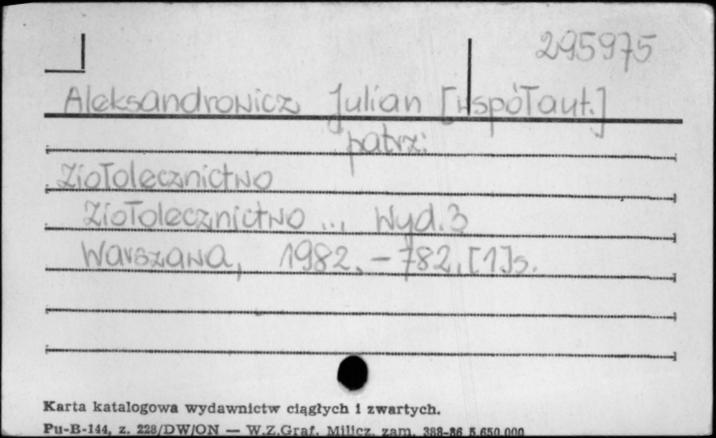 295975
Aleksandrowicz Julian [współaut.]
patrz:
Ziołolecznictwo
Ziołolecznictwo ... Wyd. 3
Warszawa, 1982. – 782, [1] s.
Karta katalogowa wydawnictw ciągłych i zwartych.
Pu-B-144, z. 228/DW/ON — W.Z.Graf. Milicz, zam. 388-86 5.650.000